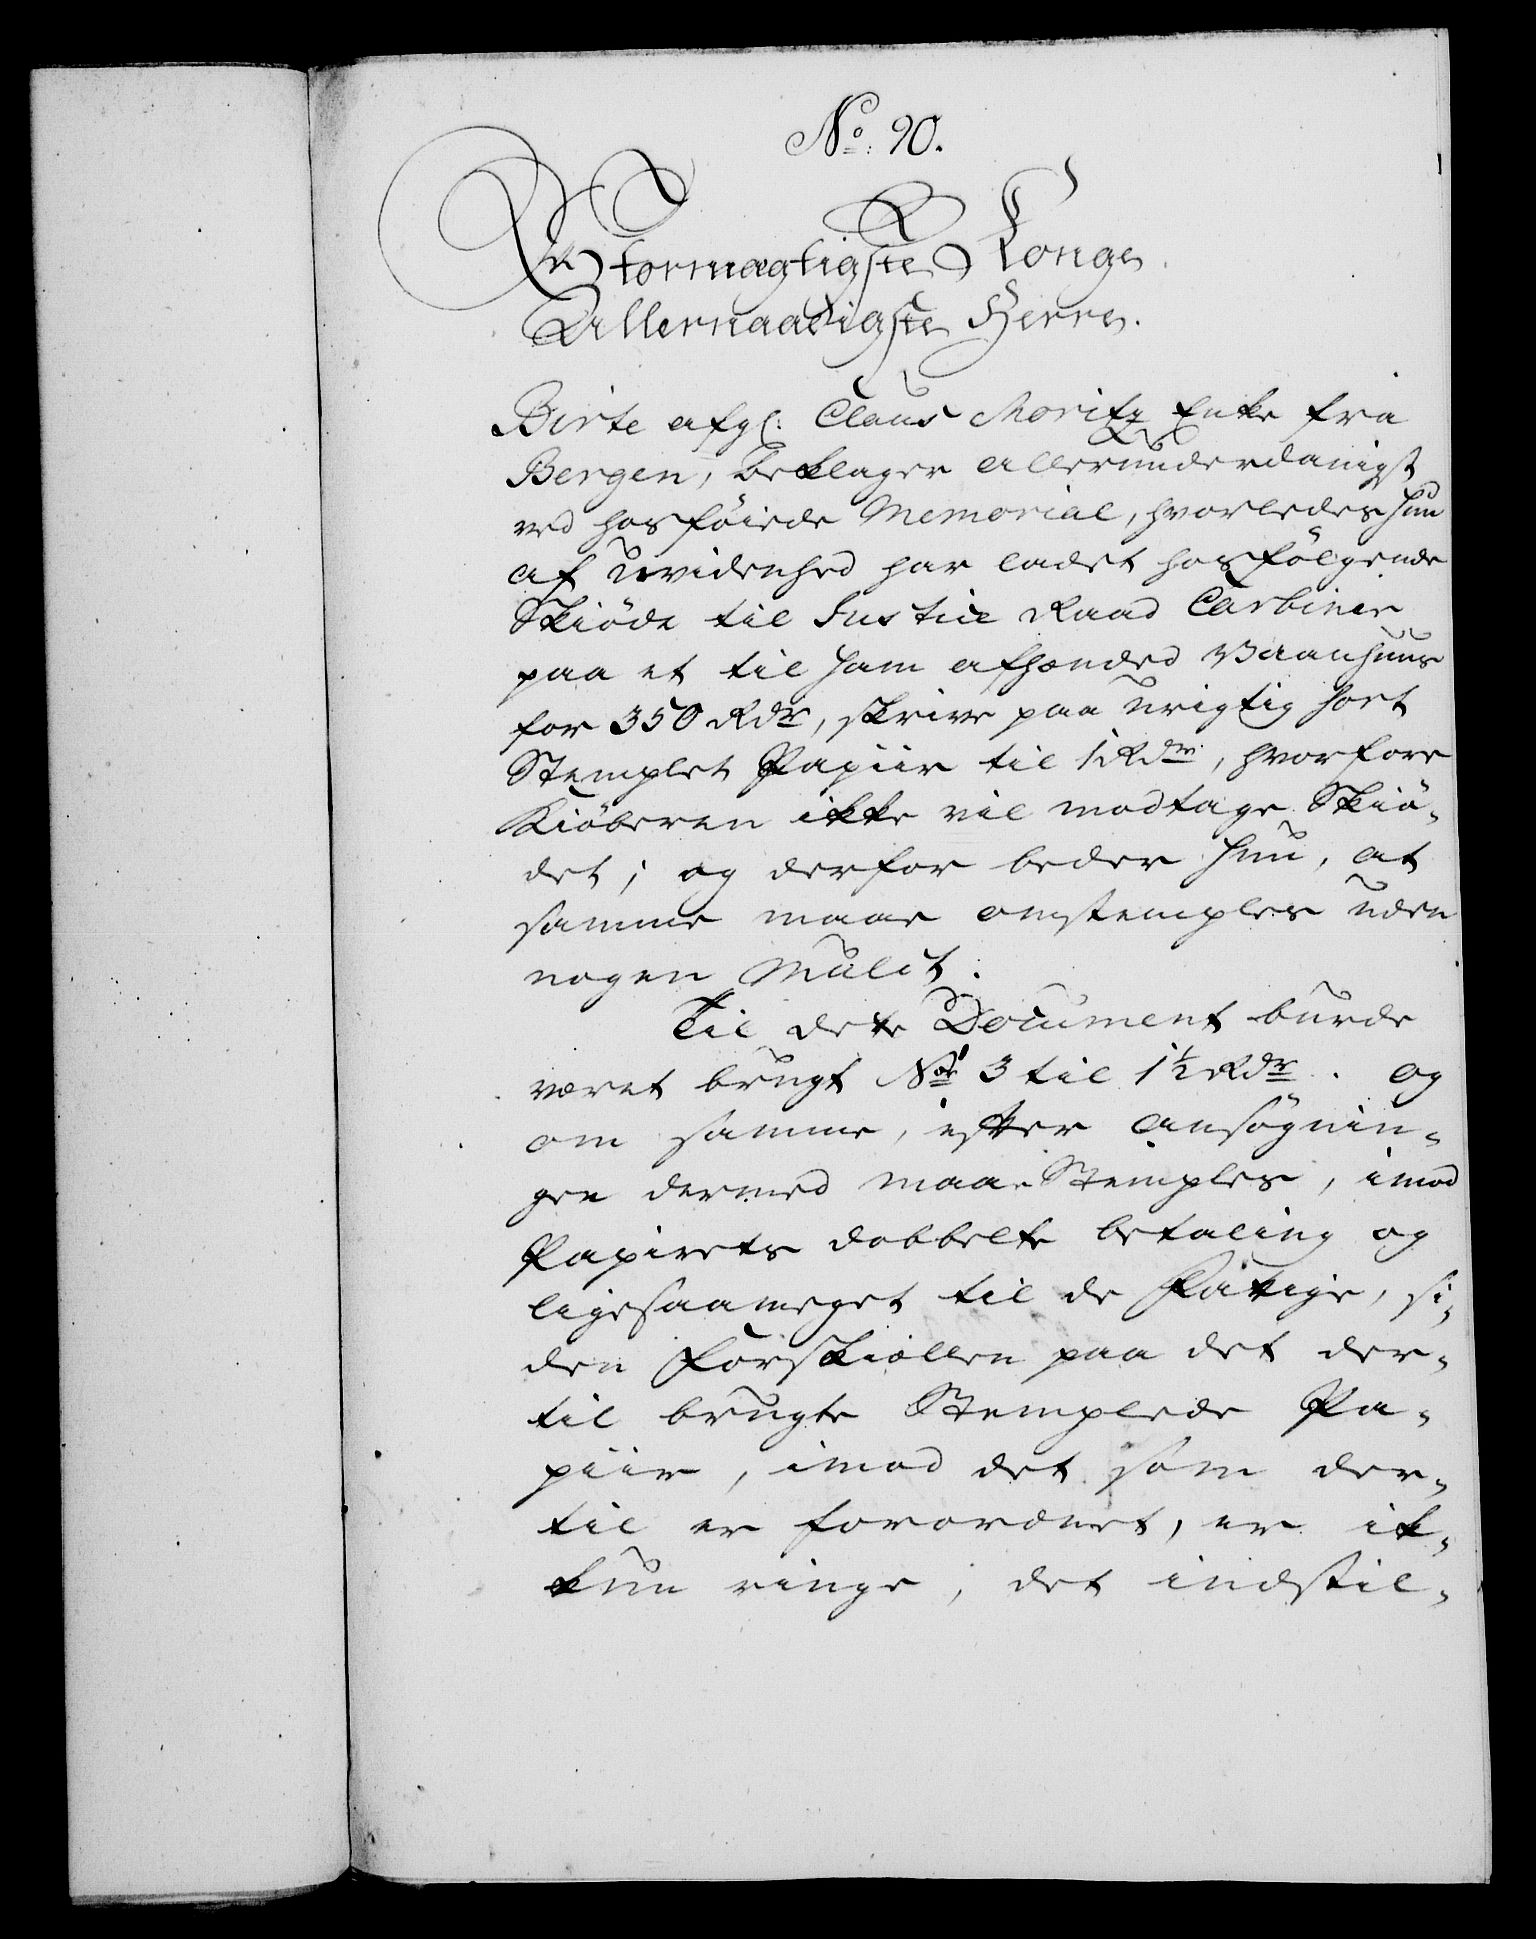 No. 90.
Stormægtigste Konge
Allernaadigste Herre.
Birte afgl. Claus Moritz Enke fra
Bergen, beklager allerunderdanigst
ved hosföiede Memorial, hvorledes hun
af uvidenhed har ladet hosfölgende
Skiöde til Justice Raad Carbiner
paa et til ham afhænded Vaanhuus
for 350 Rdr, skrive paa urigtig sort
Stemplet Papiir til 1 Rdr, hvorfore
Kiöberen ikke vil modtage Skiö-
det; og derfor beder hun, at
samme maae omstemples uden
nogen Mulct.
Til dette Document burde
været brugt No 3 til 1½ Rdr. og
om samme, efter ansögnin-
gen dermed maae Stemples, imod
Papirets dobbelte betaling og
ligesaameget til de Fattige, si-
den Forskiellen paa det der-
til brugte Stemplede Pa-
piir, imod det som der-
til er forordnet, er ik-
kun ringe, det indstil-